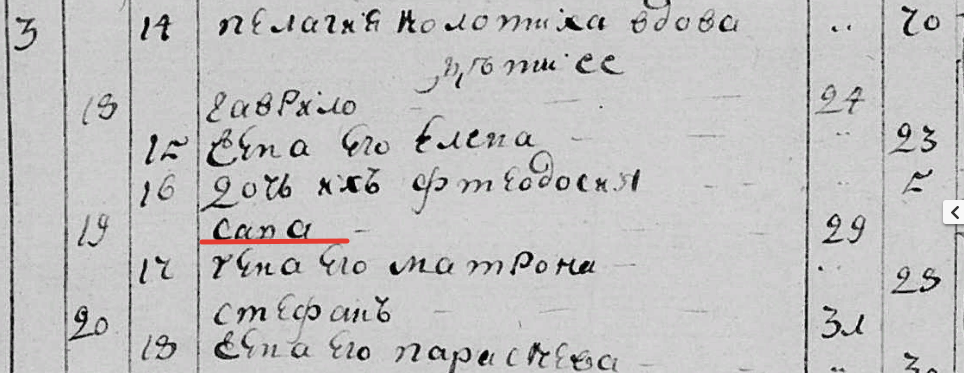 3 14 пелагия Колотиха вдова .. 70
дѣти ее
18 гаврило 24
15 жена его Елена .. 23
16 дочь ихъ фтеодосия .. 5
19 сана 29
17 жена его матрона .. 28
20 стефанъ 31
18 жена его параскева ..